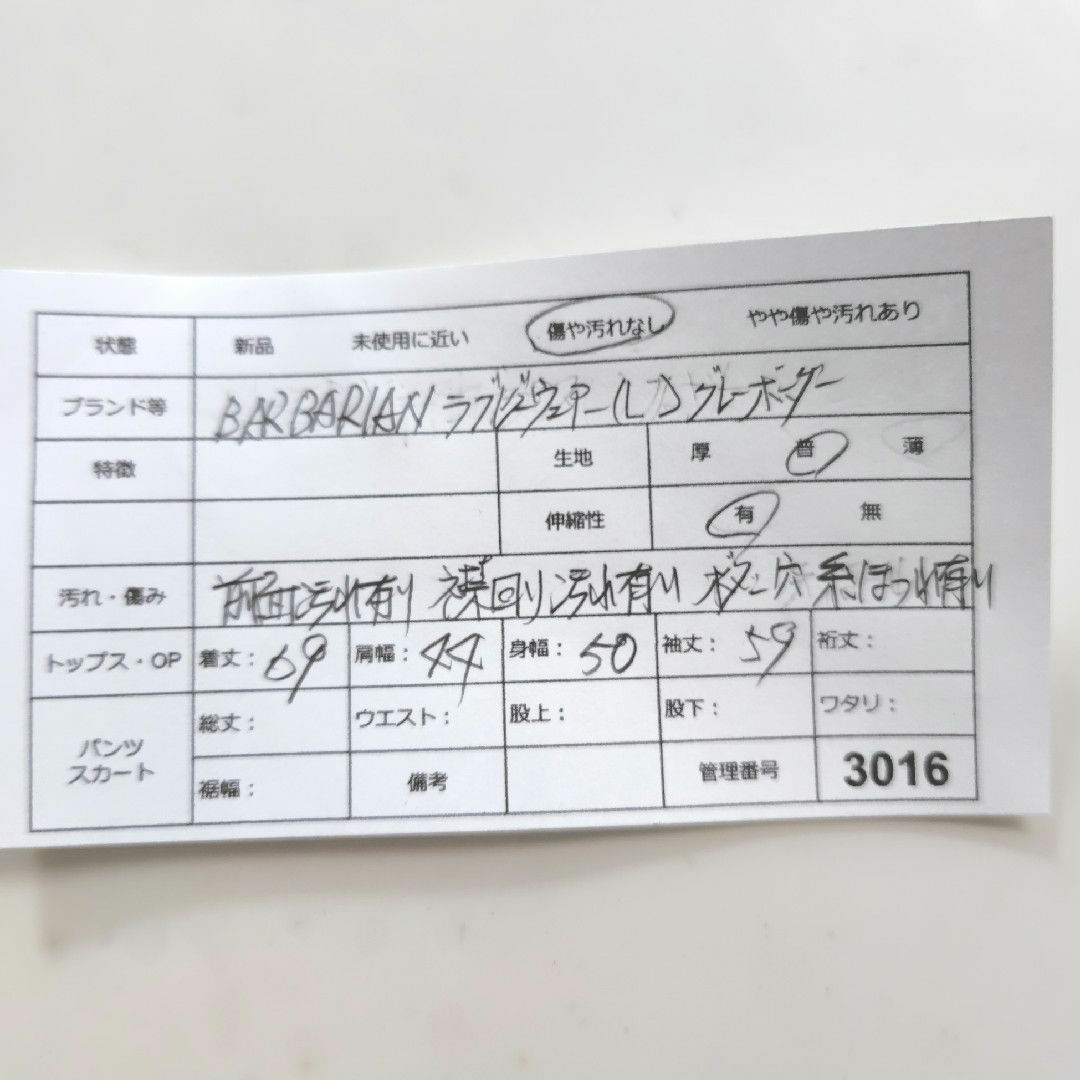 状態 新品 未使用に近い 傷や汚れなし やや傷や汚れあり
ブランド等 BARBARIAN ラブジウェアー(L)グレーボーダー
特徴 生地 厚 普 薄
伸縮性 有 無
汚れ・傷み 前面汚れ有り 襟回り汚れ有り ボタン穴 糸ほつれ有り
トップス・OP 着丈: 69 肩幅: 44 身幅: 50 袖丈: 59 裄丈:
パンツ スカート 総丈: ウエスト: 股上: 股下: ワタリ:
裾幅: 備考 管理番号 3016